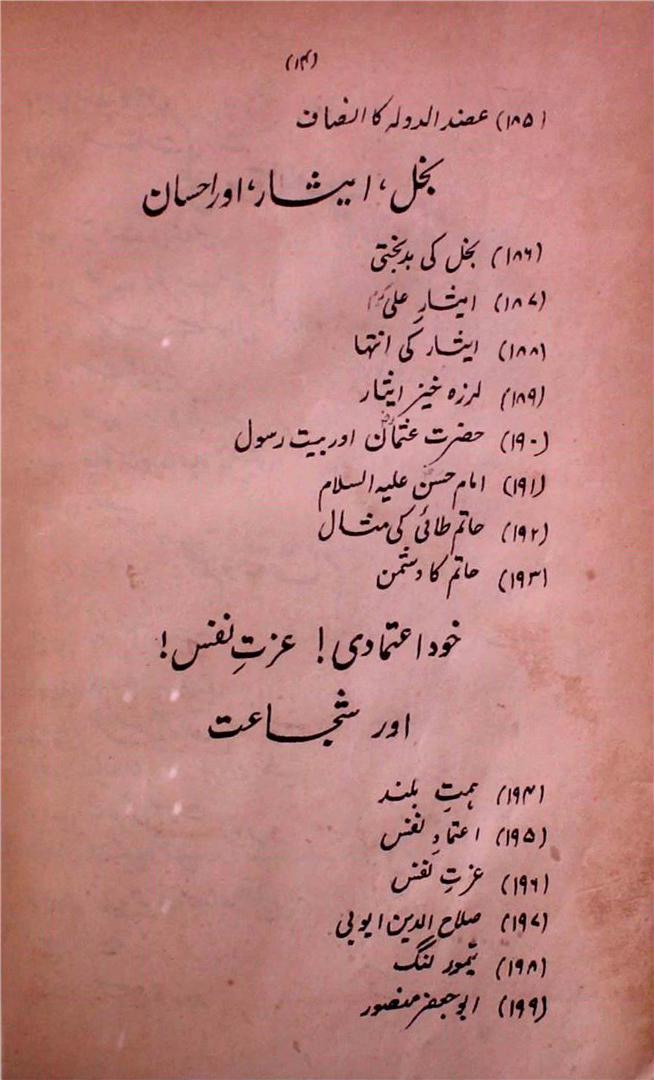 (۱۴)
(۱۸۵) عضد الدولہ کا انصاف
بخل، ایثار، اور احسان
(۱۸۶) بخل کی بدبختی
(۱۸۷) ایثارِ علی
(۱۸۸) ایثار کی انتہا
(۱۸۹) لرزہ خیز ایثار
(۱۹۰) حضرت عثمانؓ اور بیت رسول
(۱۹۱) امام حسن علیہ السلام
(۱۹۲) حاتم طائی کی مثال
(۱۹۳) حاتم کا دشمن
خود اعتمادی! عزتِ نفس!
اور شجاعت
(۱۹۴) ہمتِ بلند
(۱۹۵) اعتمادِ نفس
(۱۹۶) عزتِ نفس
(۱۹۷) صلاح الدین ایوبی
(۱۹۸) تیمور لنگ
(۱۹۹) ابو جعفر منصور